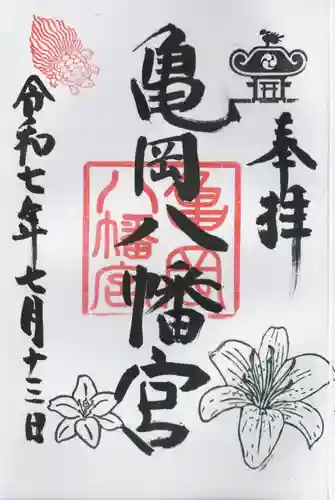 奉拝
亀岡八幡宮
亀岡八幡宮
令和七年七月十二日